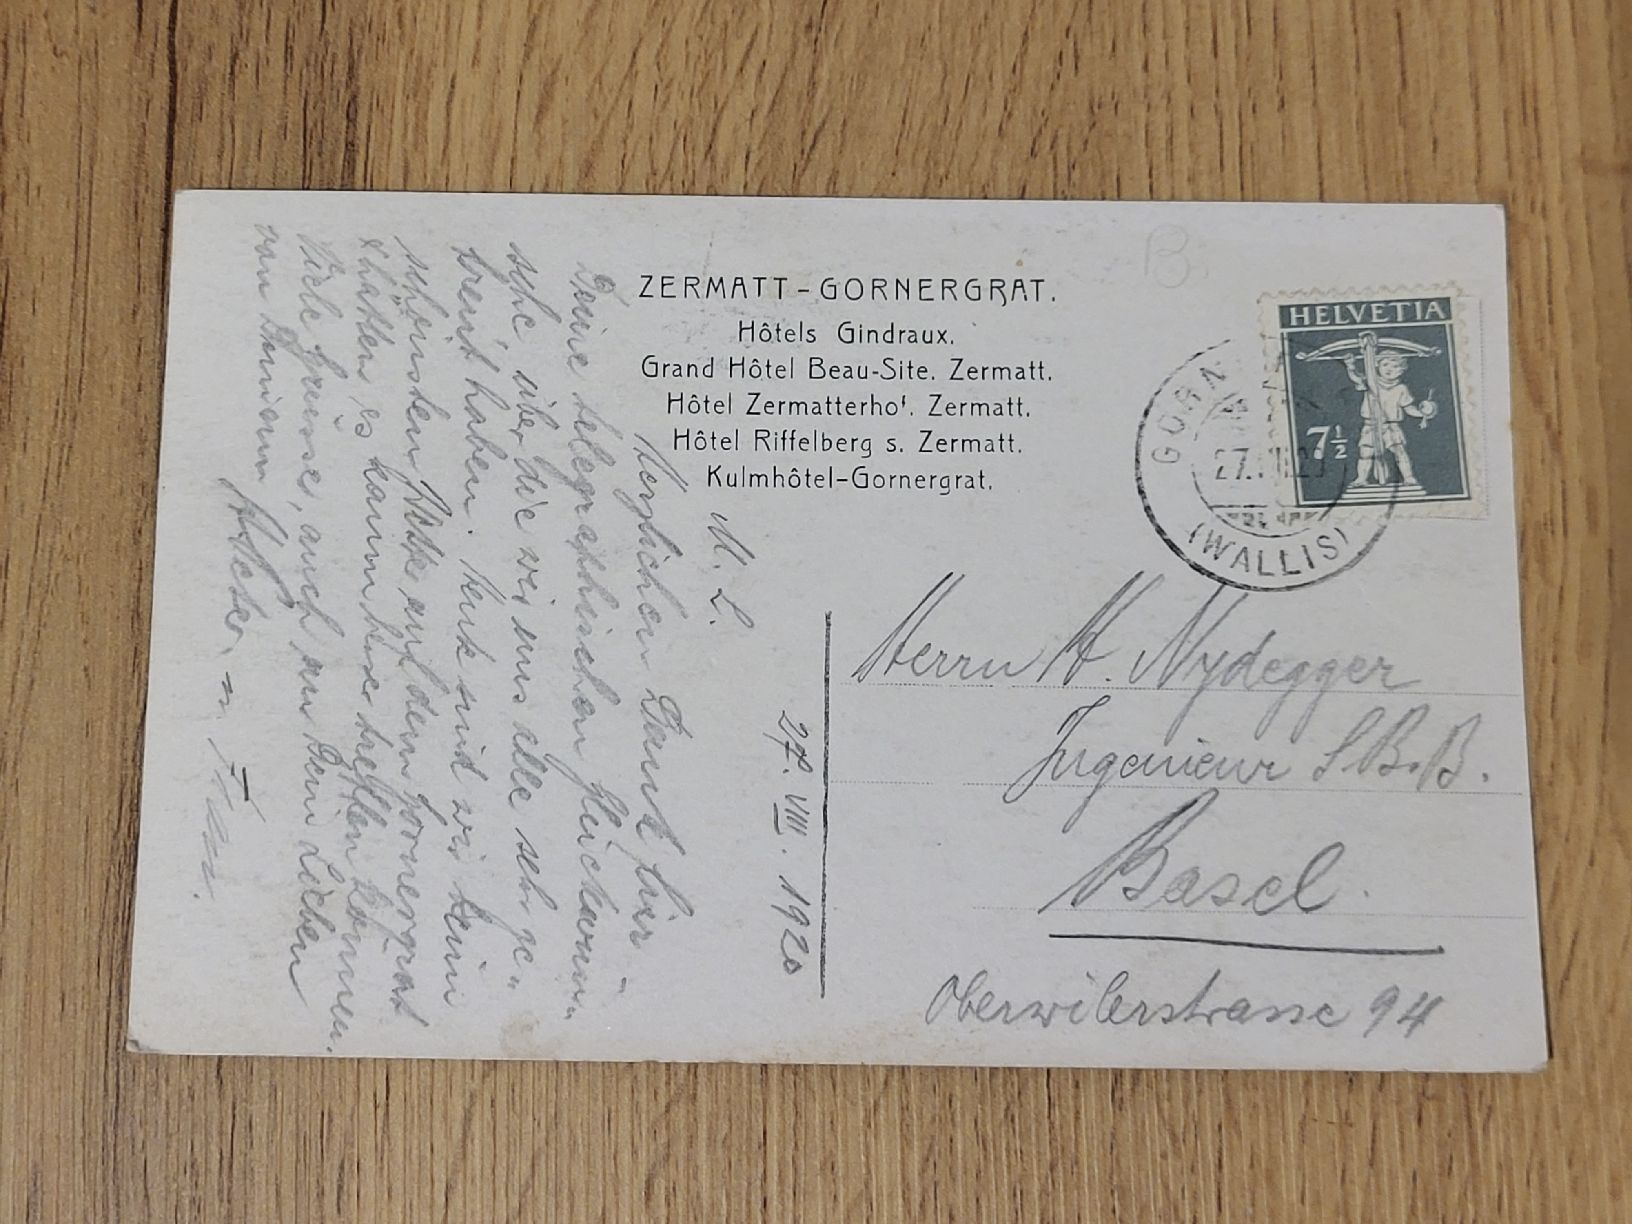 ZERMATT-GORNERGRAT.
Hôtels Gindraux.
Grand Hôtel Beau-Site. Zermatt.
Hôtel Zermatterhof. Zermatt.
Hôtel Riffelberg s. Zermatt.
Kulmhôtel-Gornergrat.
HELVETIA
7½
GORN
27.
(WALLIS)
27. VIII. 1920
M. L.
Herzlichen Dank für
Deine telegraphischen Glückwün-
sche, über die wir uns alle sehr ge-
freut haben. Heute sind wir beim
schönsten Wetter auf dem Gornergrat
& hätten es kaum besser treffen können.
Viele Grüsse, auch an Dein Lieben
von Deinem
Herrn H. Nydegger
Ingenieur S.B.B.
Basel.
Oberwilerstrasse 94